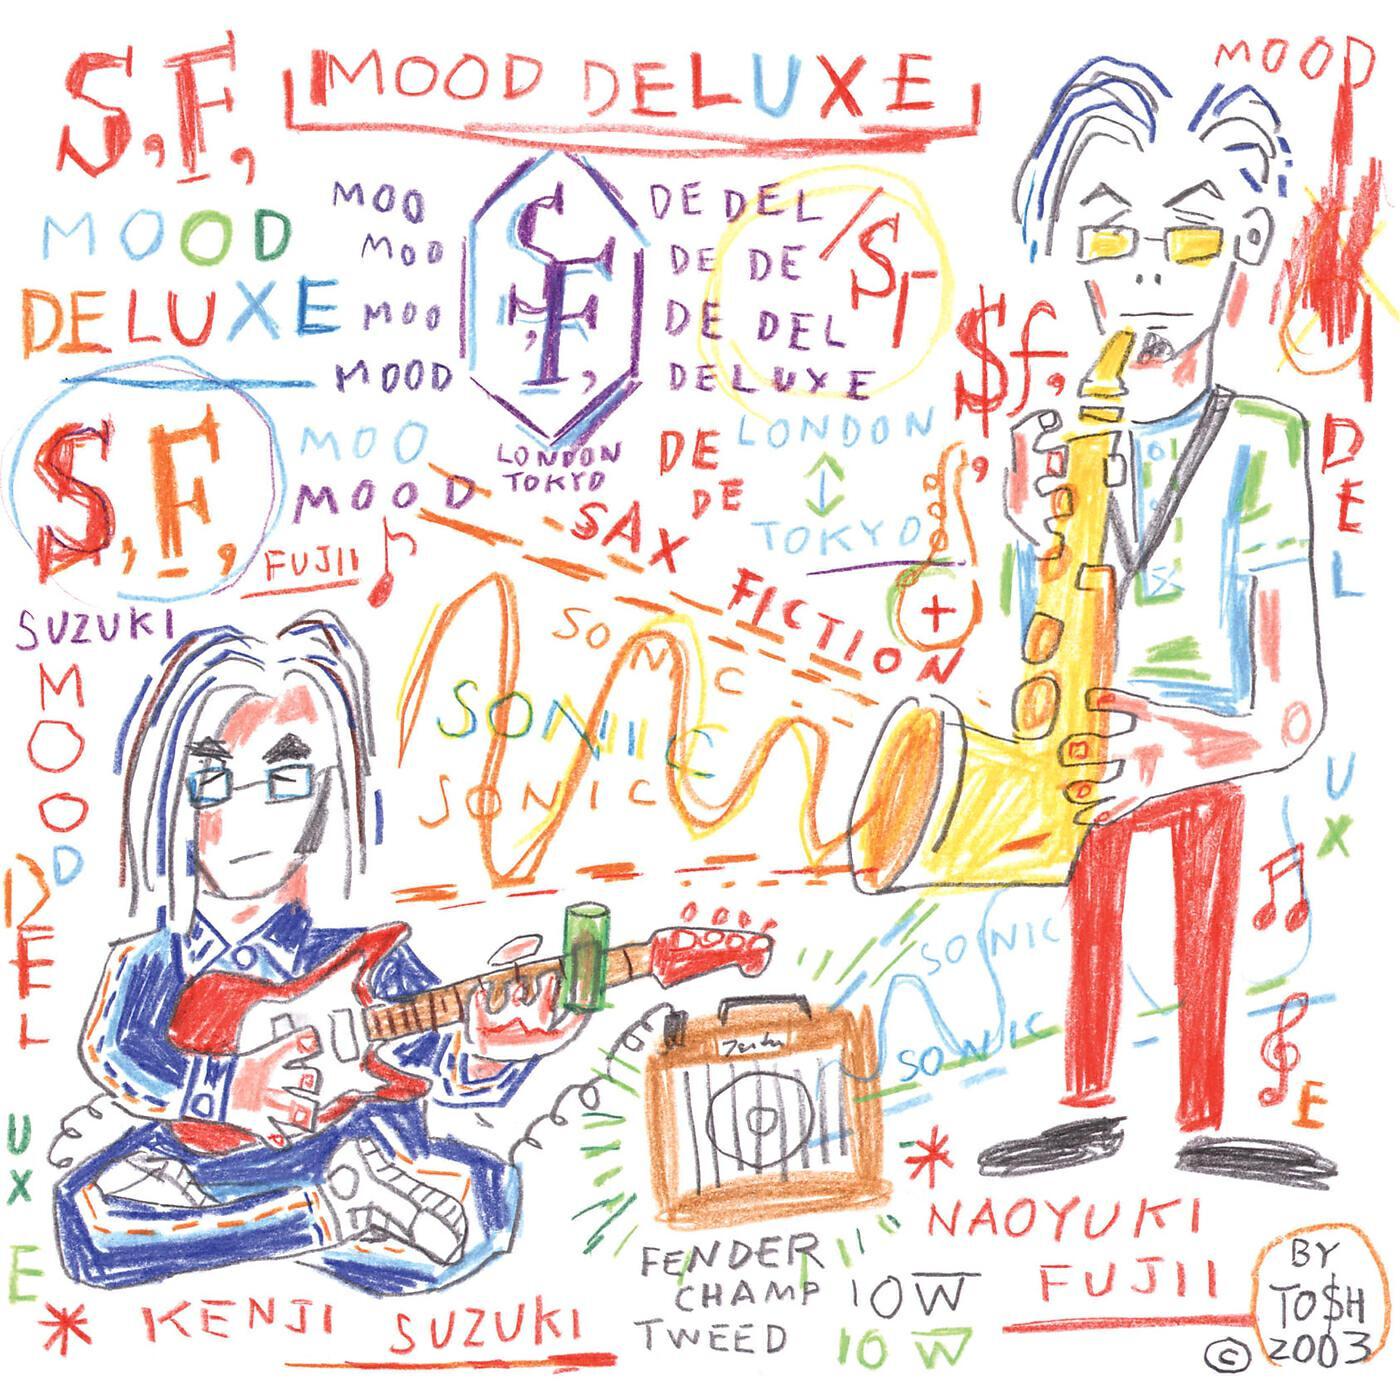 S,F,
MOOD DELUXE
MOOD
MOOD
DELUXE
MOO
MOO
MOO
MOOD
S,F,
DE DEL
DE DE
DE DEL
DELUXE
LONDON
TOKYO
$f,
S,F,
MOO
MOOD
FUJII
SUZUKI
DE
DE
LONDON
TOKYO
SAX
FICTION
SONIC
SONIIC
SONIC
MOOD
DEL
UX
E
DEL
UX
E
SONIC
SONIC
FENDER
CHAMP
TWEED
10W
10W
* KENJI SUZUKI
* NAOYUKI
FUJII
BY
TO$H
© 2003